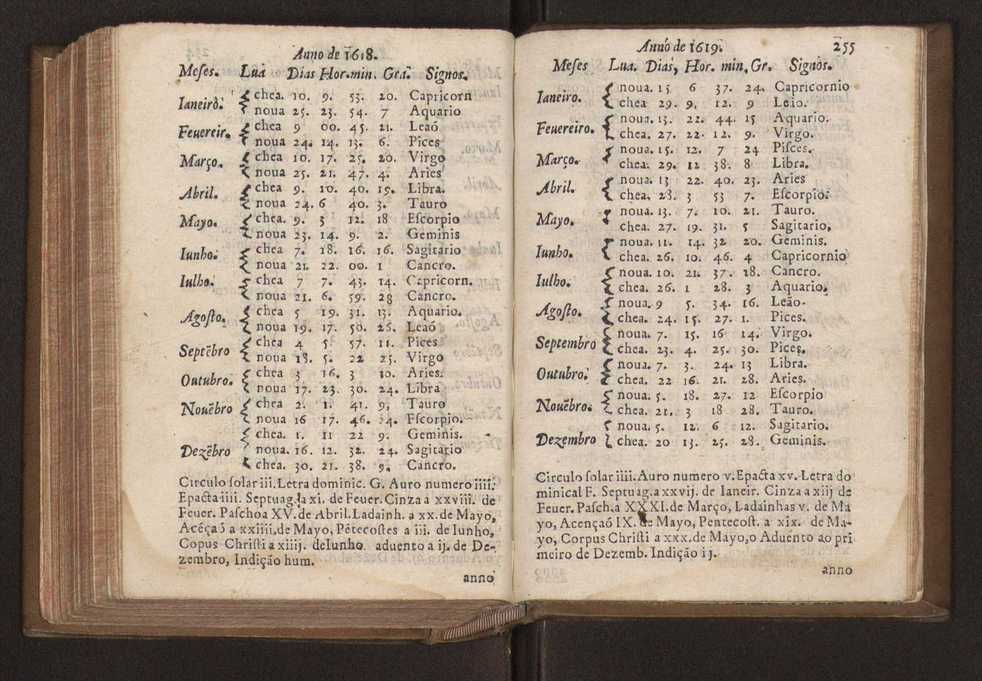 Anno de 1618.
Meses. Lua Dias Hor. min. Gra. Signos.
Ianeirò. chea. 10. 9. 53. 20. Capricorn
noua 25. 23. 54. 7 Aquario
Feuereir. chea 9 00. 45. 21. Leaó
noua 24. 14. 13. 6. Pices
Março. chea 10. 17. 25. 20. Virgo
noua 25. 21. 47. 4. Aries
Abril. chea 9. 10. 40. 19. Libra.
noua 24. 6 40. 3. Tauro
Mayo. chea. 9. 3 12. 18 Escorpio
noua 23. 14. 9. 2. Geminis
Iunho. chea 7. 18. 16. 16. Sagitario
noua 21. 22. 00. 1 Cancro.
Iulho. chea 7 7. 43. 14. Capricorn.
noua 21. 6. 59. 28 Cancro.
Agosto. chea 5 19. 31. 13. Aquario.
noua 19. 17. 50. 26. Leaó
Septẽbro chea 4 5. 57. 11. Pices
noua 18. 5. 22 25. Virgo
Outubro. chea 3 16. 3 10. Aries.
noua 17. 23. 30. 24. Libra
Nouẽbro chea 2. 1. 41. 9, Tauro
noua 16 17. 46. 24. Escorpio.
chea. 1. 11 22 9. Geminis.
Dezẽbro noua. 16. 12. 32. 24. Sagitario
chea. 30. 21. 38. 9. Cancro.
Circulo solar iii. Letra dominic. G. Auro numero iiii.
Epacta iiii. Septuag. a xi. de Feuer. Cinza a xxviii. de
Feuer. Paschoa XV. de Abril. Ladainh. a xx. de Mayo,
Acẽçaõ a xxiiii, de Mayo, Pẽtecostes a iii. de Iunho,
Copus Christi a xiiij. de Iunho aduento a ij. de De-
zembro, Indição hum.
anno
Anno de 1619. 255
Meses Lua. Dias, Hor. min, Gr. Signos.
Ianeiro. noua. 15 6 37. 24. Capricornio
chea 29. 9. 12. 9 Leão.
Feuereiro. noua. 13. 22. 44. 15 Aquario.
chea. 27. 22. 12. 9. Virgo.
Março. noua. 15. 12. 7 24 Pisces.
chea. 29. 12 38. 8 Libra.
Abril. noua. 13 22. 40. 23. Aries
chea, 28. 3 53 7. Escorpio.
Mayo. noua. 13. 7. 10. 21. Tauro.
chea. 27. 19. 31. 5 Sagitario,
Iunho. noua. 11. 14. 32 20. Geminis.
chea. 26. 10. 46. 4 Capricornio
Iulho. noua. 10. 21. 37. 18. Cancro.
chea. 26. 1 28. 3 Aquario.
Agosto. noua. 9 5. 34. 16. Leão.
chea. 24. 15. 27. 1. Pices.
Septembro noua. 7. 15. 16 14. Virgo.
chea. 23. 4. 25. 30. Pices.
Outubro. noua. 7. 3. 24. 13 Libra.
chea. 22 16. 21. 28. Aries.
Nouẽbro. noua. 5. 18. 27. 12 Escorpio
chea. 21. 3 18 28. Tauro.
Dezembro noua. 5. 12. 6 12. Sagitario.
chea. 20 13. 25. 28. Geminis.
Circulo solar iiii. Auro numero v. Epacta xv. Letra do
minical F. Septuag. a xxvij. de Ianeir. Cinza a xiij de
Feuer. Pasch. a XXXI. de Março, Ladainhas v. de Ma
yo, Acençaõ IX. de Mayo, Pentecost. a xix. de Ma-
yo, Corpus Christi a xxx. de Mayo, o Aduento ao pri
meiro de Dezemb. Indição ij.
anno